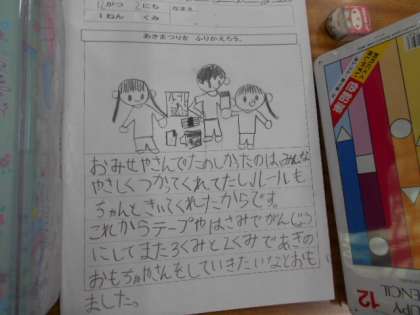 がつ にち
なまえ
1ねん くみ
あきまつりを ふりかえろう。
おみせやさんでたのしかったのは、みんな
やさしくつかってくれてたし、ルールも
ちゃんときいてくれたからです。
これからテープやはさみでがんじょう
にしてまた3くみと2くみであきの
おもちゃやさんをしていきたいなとおも
いました。
色鉛筆
PENCIL
12